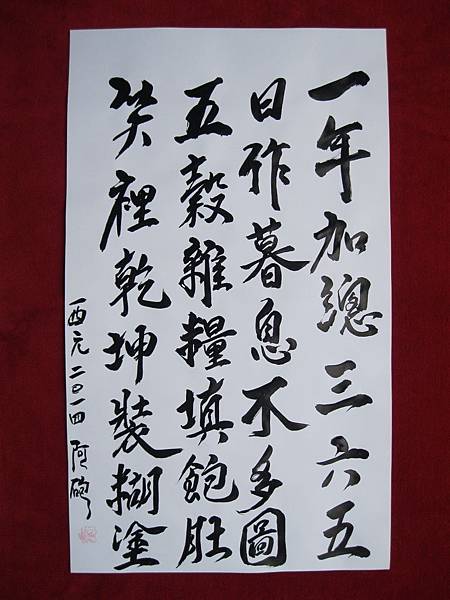 一年加總三六五
日作暮息不多圖
五穀雜糧填飽肚
笑裡乾坤裝糊塗
西元二〇一四 阿硘